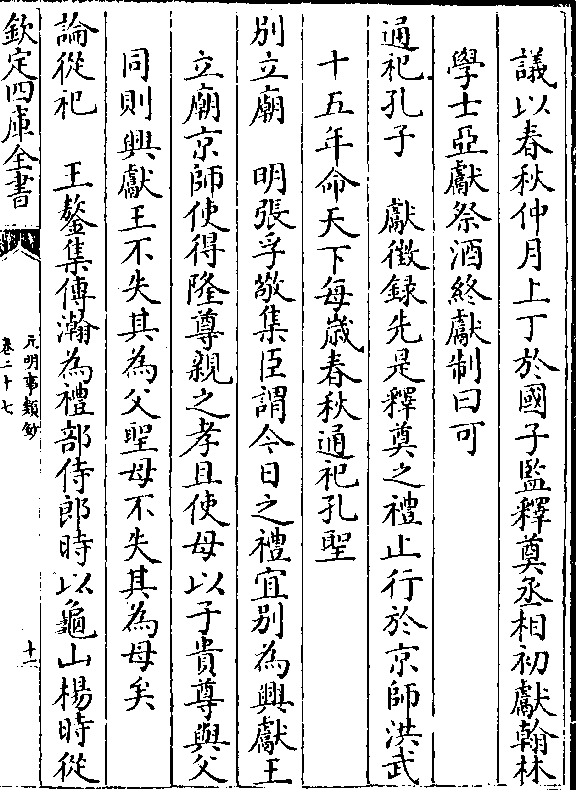 議以春秋仲月上丁於國子監釋奠丞相初獻翰林
學士亞獻祭酒終獻制曰可
通祀孔子　獻徴録先是釋奠之禮止行於京師洪武
十五年命天下每歳春秋通祀孔聖
別立廟　明張孚敬集臣謂今日之禮宜別為興獻王
立廟京師使得隆尊親之孝且使母以子貴尊與父
同則興獻王不失其為父聖母不失其為母矣
論從祀　王鏊集傅瀚為禮部侍郎時以龜山楊時從
欽定四庫全書
元明事類鈔
卷二十七
十一